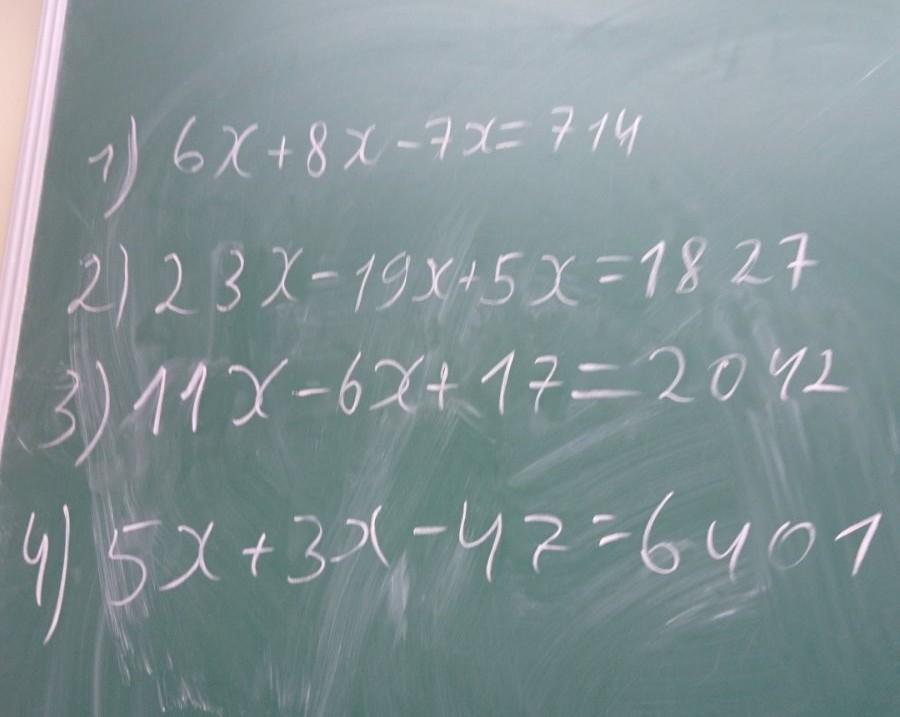 1) 6x+8x-7x=714
2) 23x-19x+5x=1827
3) 11x-6x+17=2042
4) 5x+3x-47=6401